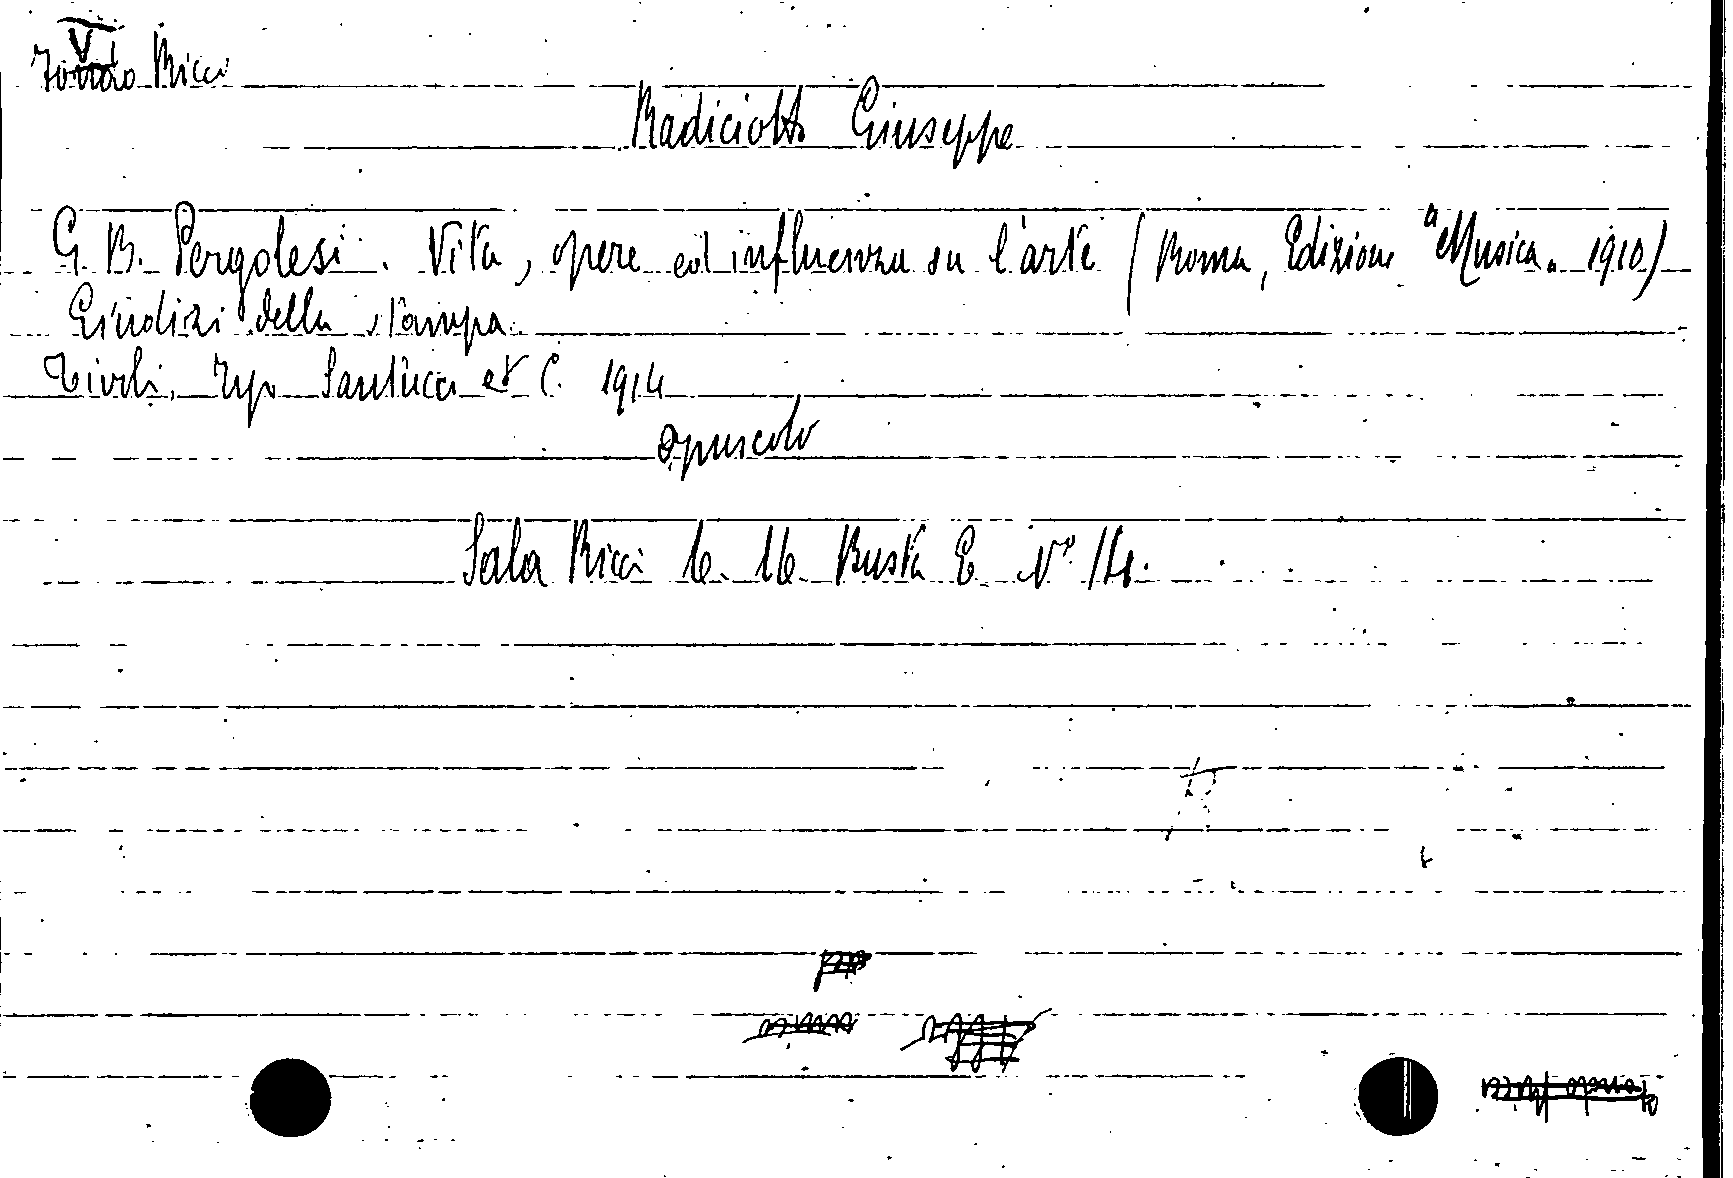 V
Fondo Ricci
Radiciotti Giuseppe
G. B. Pergolesi. Vita, opere ed influenza su l'arte (Roma, Edizione "Musica" 1910)
Giudizi della stampa
Tivoli, Typ Santucci et C. 1914
opuscolo
Sala Ricci 16. Busta E N° 14.